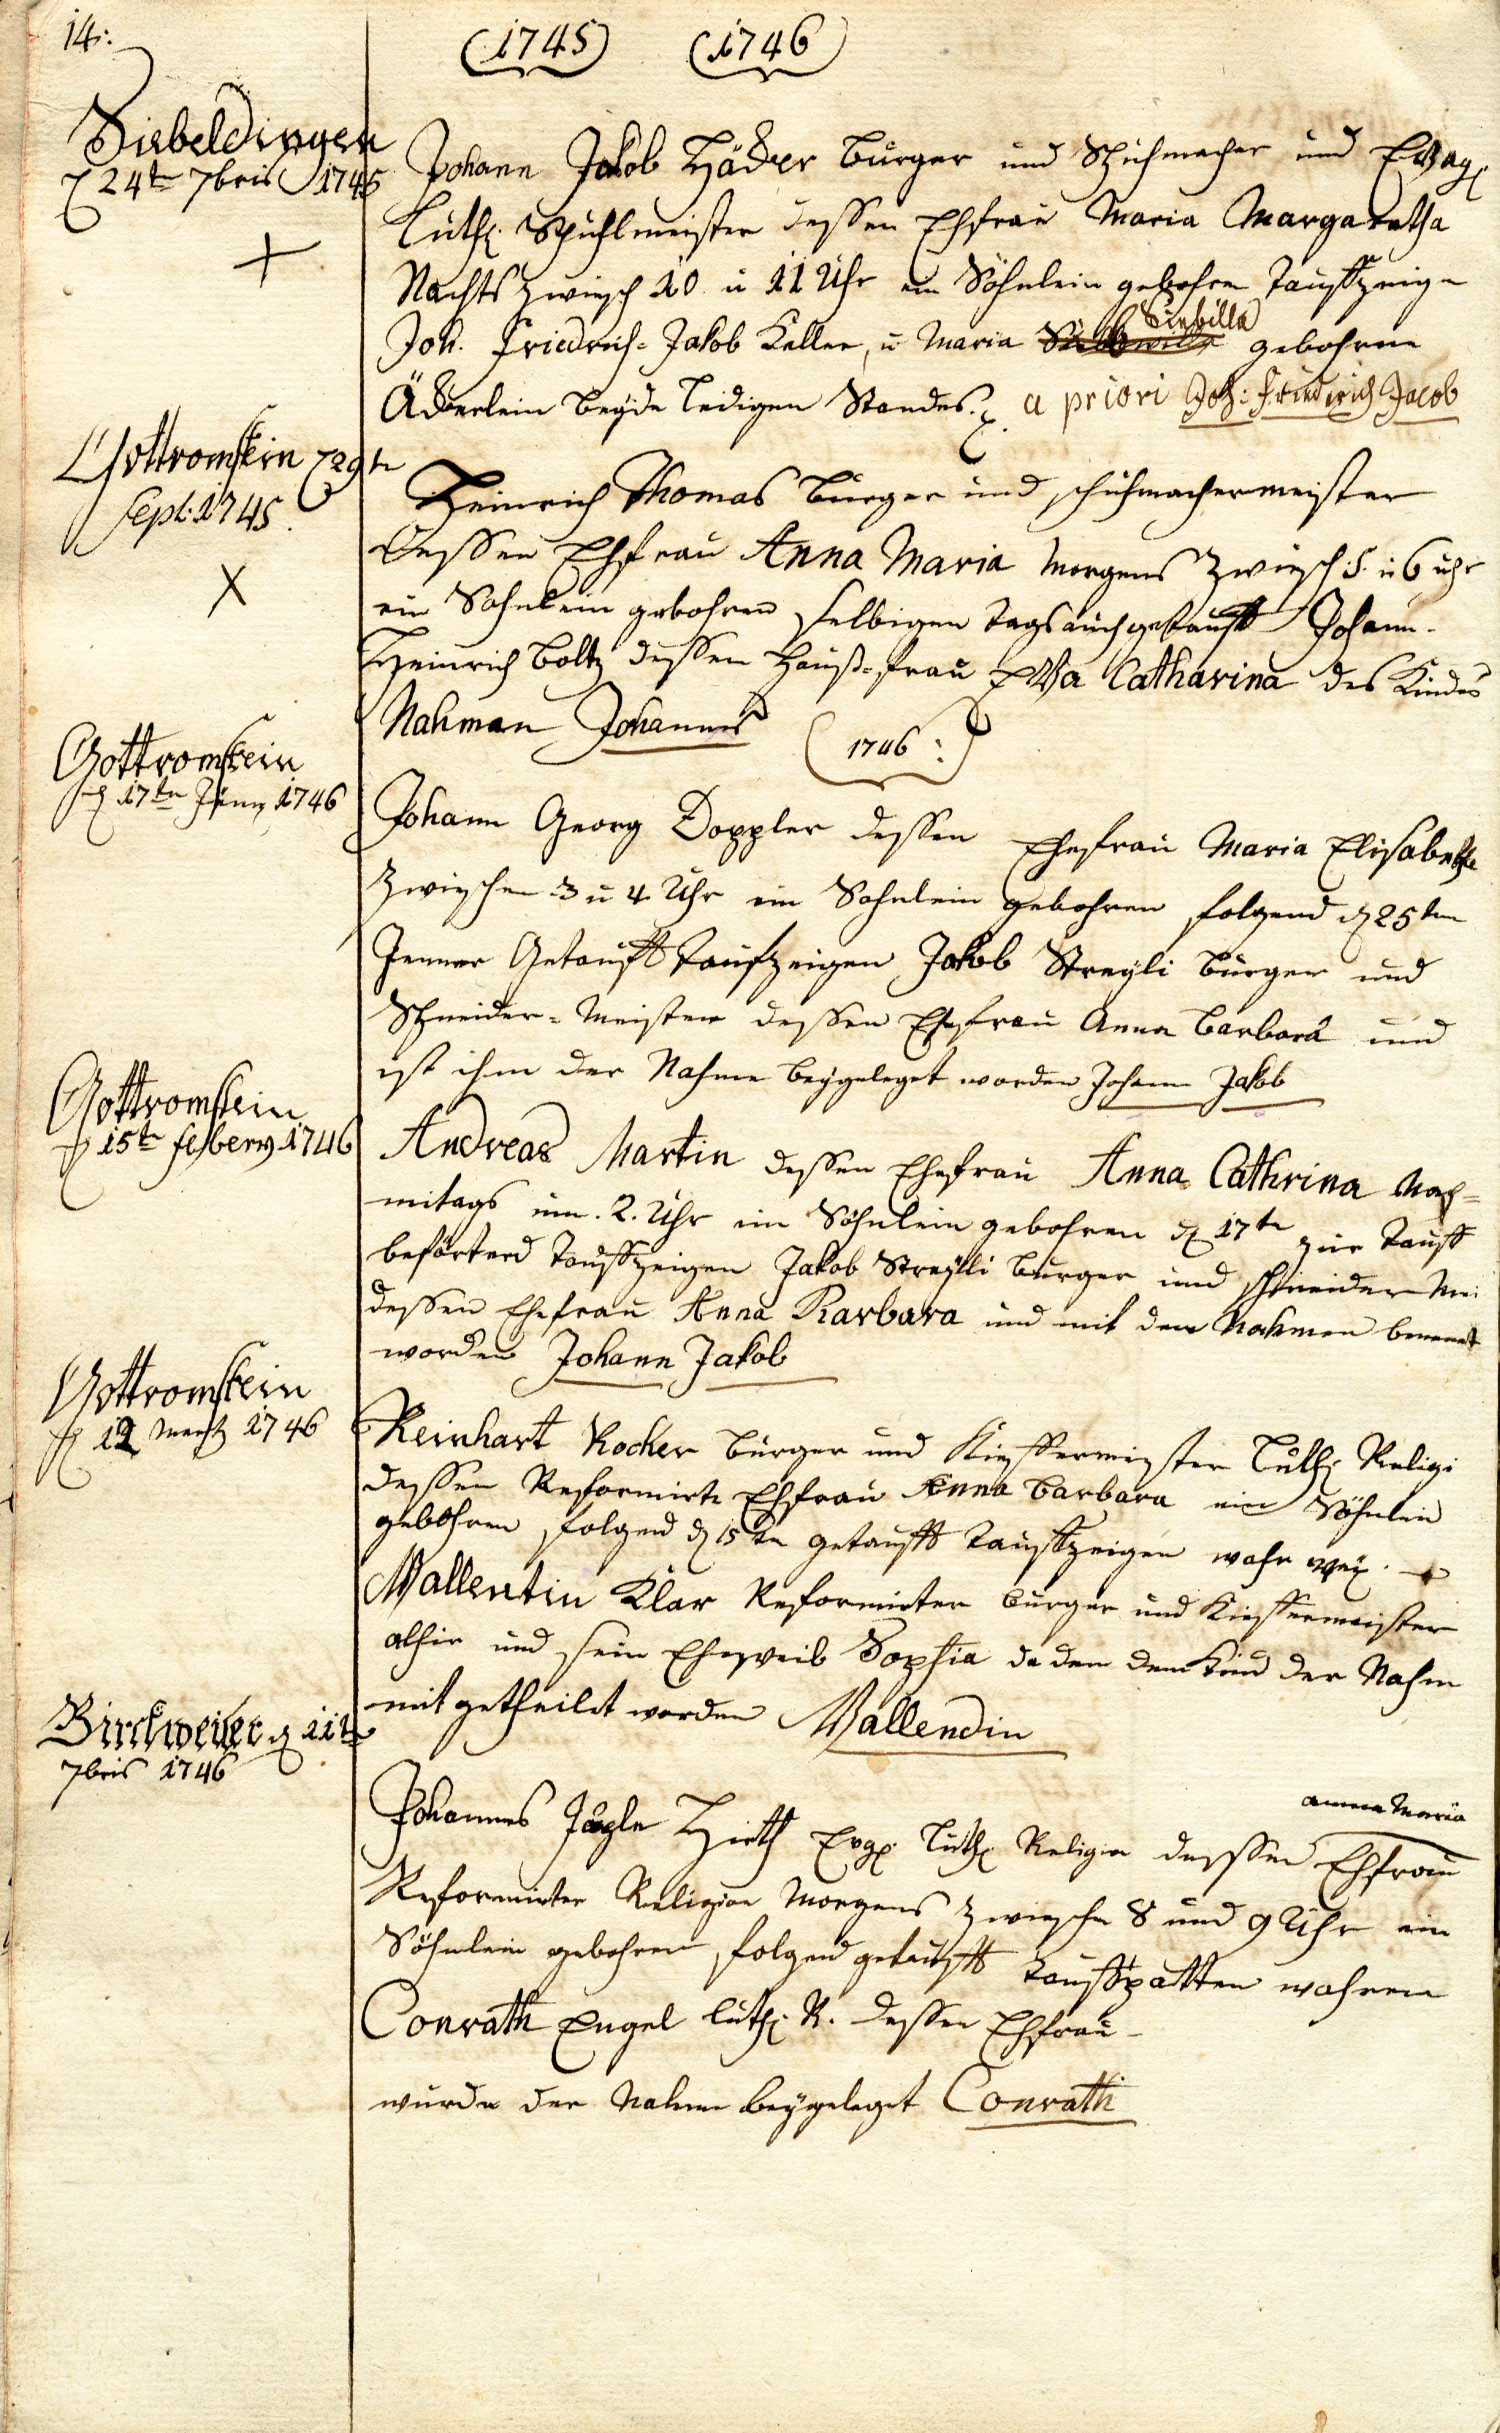 14.
(1745) (1746)
Siebeldingen
d 24tn 7bris 1745
Johann Jakob Häder Burger und Schuhmacher und Evag.
Luth. Schuhlmeister dessen Ehfrau Maria Margaretha
Nachts zwisch 10 u 11 Uhr ein Söhnlein gebohren Tauffzeugen
Joh. Friedrich= Jakob Keller, u Maria Siebilla gebohrne
Äderlein beyde Ledigen Standes. a priori Joh: Friederich Jacob
Gottromstein d 29tn
Sept. 1745.
Heinrich Thomas Burger und schuhmachermeister
dessen Ehfrau Anna Maria Morgens zwisch. 5. u 6 uhr
ein Sohnlein gebohren selbigen Tags auch getaufft Johann-
Heinrich Boltz dessen Hauß=frau EVa Catharina des Kindes
Nahmen Johannes
(1746:)
Gottromstein
d 17tn Jäng 1746
Johann Georg Doppler dessen Ehefrau Maria Elisabetha
zwischen 3 u 4 Uhr ein Sohnlein gebohren folgend d 25ten
Jenner Getaufft Taufzeugen Jakob Streyli Bürger und
Schneider=Meister dessen Ehefrau Anna Barbara und
ist ihm der Nahme beygeleget worden Johann Jakob
Gottromstein
d 15tn febery 1746
Andreas Martin dessen Ehefrau Anna Cathrina Nach=
mitags um. 2. Uhr ein Söhnlein gebohren d 17tn zur Tauff
beförterd Tauffzeugen Jakob Streyli Burger und schneider Mei
dessen Ehefrau Anna Barbara und mit dem Nahmen benent
worden Johann Jakob
Gottromstein
d 12 Mertz 1746
Reinhart Kocher Bürger und Kieffermeister Luth. Religi
dessen Reformirte Ehfrau Anna Barbara ein Söhnlein
gebohren folgend d 15tn getaufft Tauffzeugen wahr
Wallentin Klar Reformirter Burger und Kieffermeister
alhir und sein Eheweib Sophia da dem Kind der Nahm
mit getheilet worden Wallendin
Birckweiler d 11tn
7bris 1746
anna Maria
Johannes Jägle Hirth Evg. Luth. Religion dessen Ehfrau
Reformirter Religion Morgens zwischen 8 und 9 Uhr ein
Söhnlein gebohren, folgend getaufft Tauffpatten wahren
Conrath Engel luth. R. dessen Ehfrau-
wurde der Nahme beygeleget Conrath